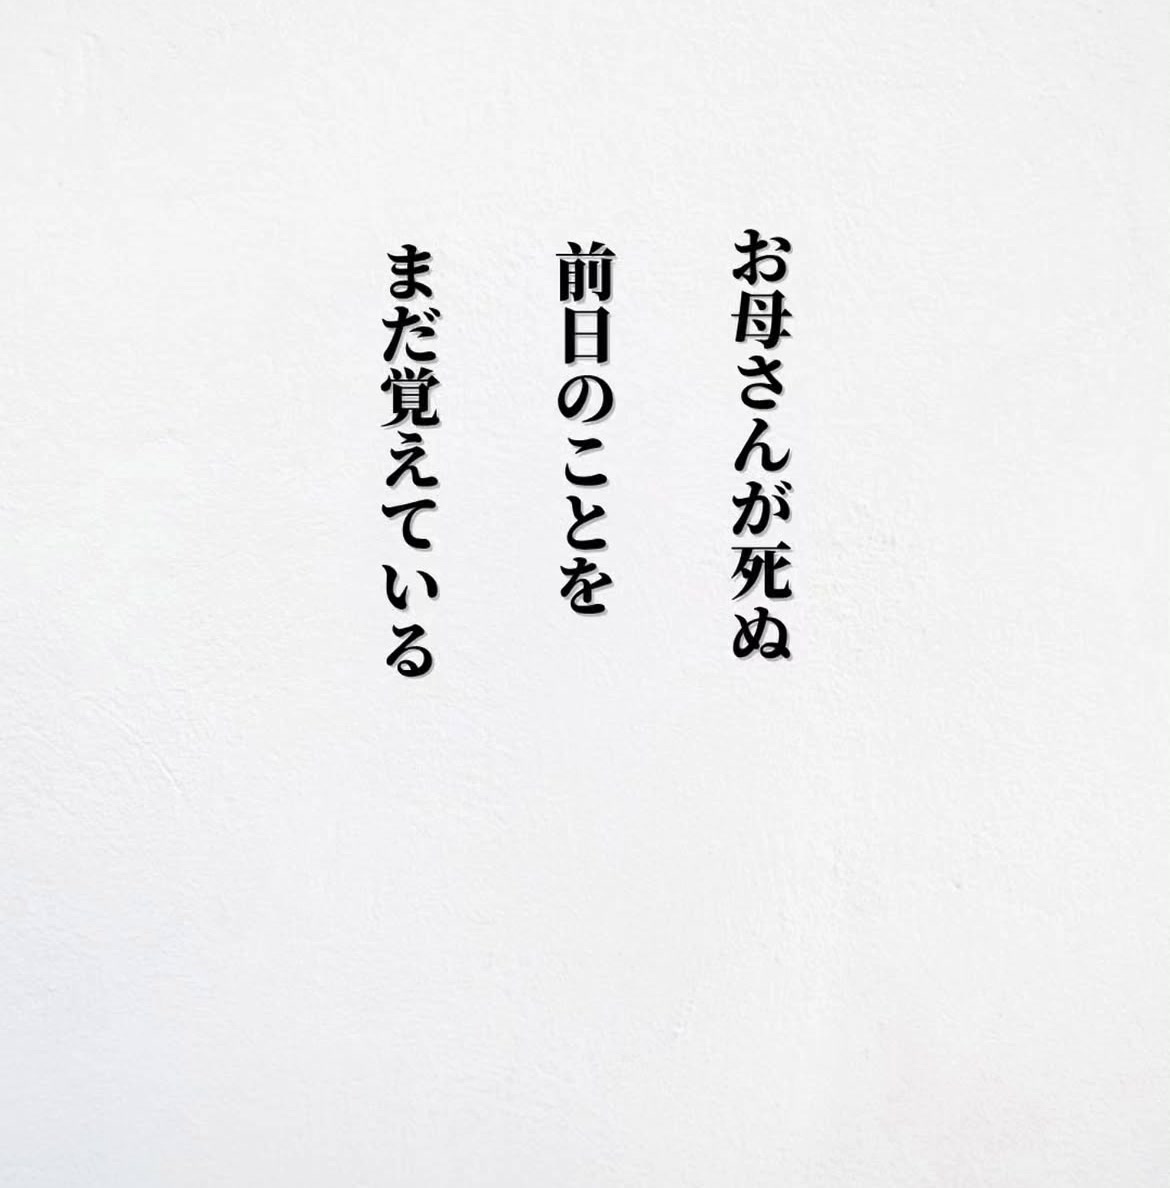 お母さんが死ぬ
前日のことを
まだ覚えている